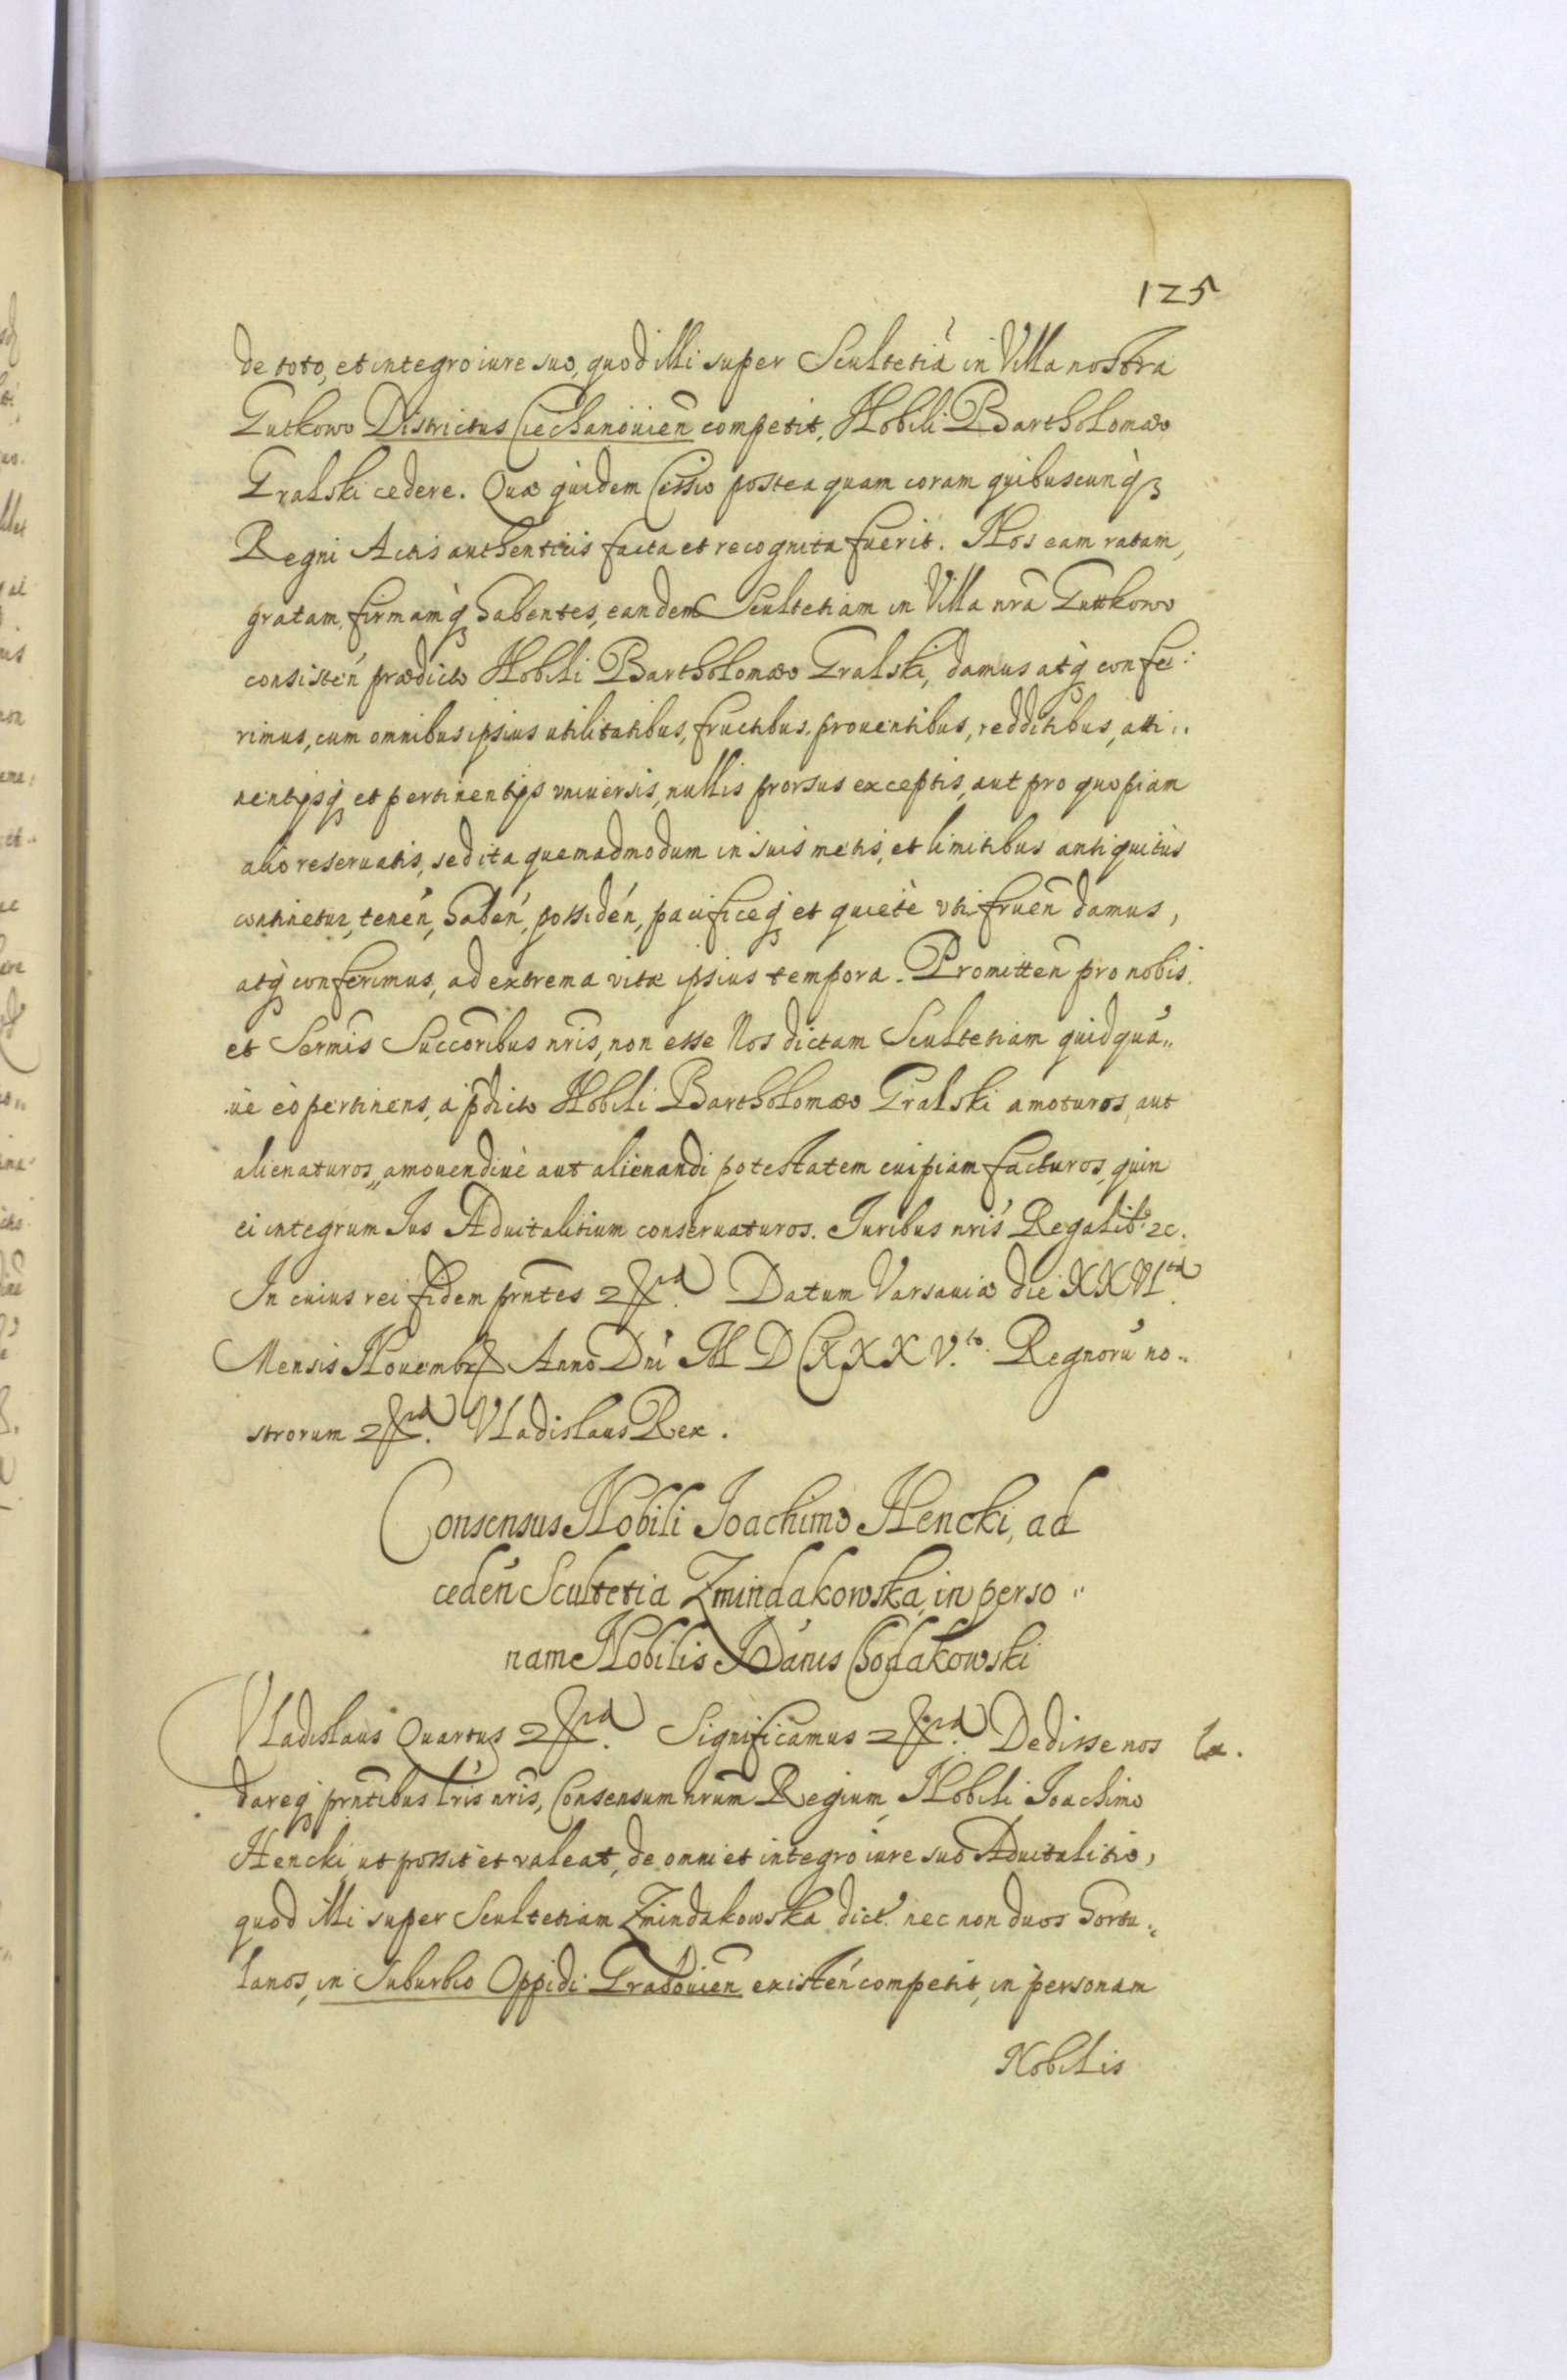 125
de toto, et integro iure suo, quod illi super Scultetiā in Villa nostra
Gutkowo Districtus Ciechanouien̄ competit, Nobili Bartholomæo
Gralski cedere. Quæ quidem Cessio postea quam coram quibuscunq̢
Regni Actis authenticis facta et recognita fuerit. Nos eam ratam,
gratam, firmamq̢ habentes, eandem Scultetiam in Villa nrā Gutkowo
consisteń prædicto Nobili Bartholomæo Gralski, damus atq̢ confe:
rimus, cum omnibus ipsius utilitatibus, fructibus, prouentibus, redditibus, atti„
nentijsq̢ et pertinentijs vniuersis, nullis prorsus exceptis, aut pro quopiam
alio reseruatis, sed ita quemadmodum in suis metis, et limitibus antiquitùs
continetur, teneń, habeń, possideń, pacificeq̢ et quietè vti fruen̄ damus,
atq̢ conferimus, ad extrema vitæ ipsius tempora. Promitten̄ pro nobis
et Sermis̄ Succoribus̄ nris̄, non esse Nos dictam Scultetiam quidquá„
uè eò pertinens, à pdicto Nobili Bartholomæo Gralski amoturos, aut
alienaturos, amouendiuè aut alienandi potestatem cuipiam facturos, quin
ei integrum Ius Aduitalitium conseruaturos. Iuribus nris Regalib9 2c.
In cuius rei fidem prntes̄ 2 Datum Varsauiæ die XXVI
Mensis Nouembr Anno Dni M D CXXXV.to Regnorú no„
strorum 2 Vladislaus Rex.
Consensus Nobili Ioachimo Hencki, ad
cedeń Scultetia Zmindakowska, in perso„
nam Nobilis Ioánis Chodakowski
Vladislaus Quartus 2 Significamus 2 Dedisse nos
dareq̢ prntibus̄ lris nris̄, Consensum nrum̄ Regium, Nobili Ioachimo
Hencki, ut possit et valeat, de omni et integro iure suo Aduitalitio,
quod illi super Scultetiam Zmindakowska dict. nec non duos hortu„
lanos, in Suburbio Oppidi Grabouien̄ existeń competit, in personam
Nobilis